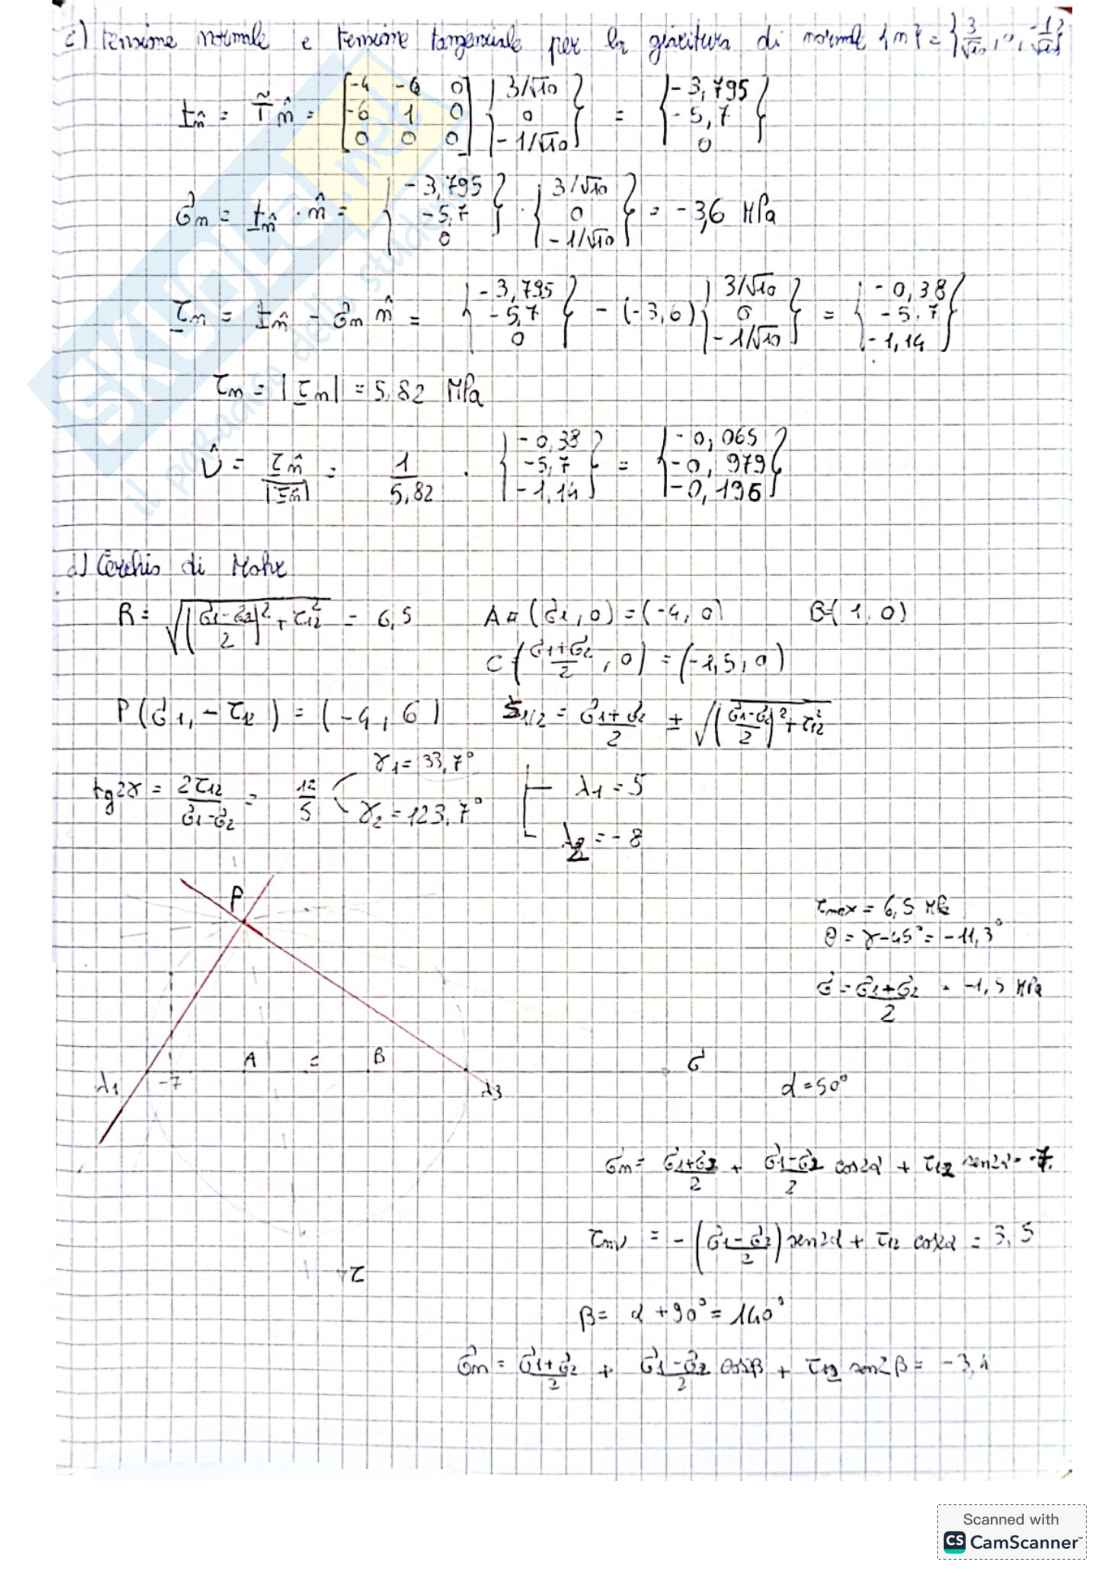 c) tensione normale e tensione tangenziale per la giacitura di normale {n} = {3/√10, 0, -1/√10}
t_n̂ = T̃ n̂ = [-4 -6 0; -6 1 0; 0 0 0] {3/√10; 0; -1/√10} = {-3,795; -5,7; 0}
σn = t_n̂ · n̂ = {-3,795; -5,7; 0} · {3/√10; 0; -1/√10} = -3,6 MPa
τn = t_n̂ - σn n̂ = {-3,795; -5,7; 0} - (-3,6) {3/√10; 0; -1/√10} = {-0,38; -5,7; -1,14}
τn = |τn| = 5,82 MPa
ν̂ = τn̂/|τn̂| = 1/5,82 · {-0,38; -5,7; -1,14} = {-0,065; -0,979; -0,196}
d) Cerchio di Mohr
R = √((σ1-σ2)/2)² + τ12² = 6,5 A = (σ1, 0) = (-4, 0) B = (1, 0)
C = (σ1+σ2/2, 0) = (-1,5, 0)
P(σ1, -τ12) = (-4, 6) 1/2 = σ1+σ2/2 ± √((σ1-σ2)/2)² + τ12²
tg2γ = 2τ12/σ1-σ2 = 12/5 γ1 = 33,7° γ2 = 123,7° λ1 = 5
λ2 = -8
P
τmax = 6,5 MPa
θ = γ-45° = -11,3°
σ = σ1+σ2/2 = -1,5 MPa
A = B σ
λ1 -7 λ3
α = 50°
σn = σ1+σ2/2 + σ1-σ2/2 cos2α + τ12 sen2α = -7
τnν = -(σ1-σ2/2) sen2α + τ12 cos2α = 3,5
τ
β = α + 90° = 140°
σn = σ1+σ2/2 + σ1-σ2/2 cos2β + τ12 sen2β =
SKUOLA.net
il paradiso dello studente
Scanned with
CS CamScanner